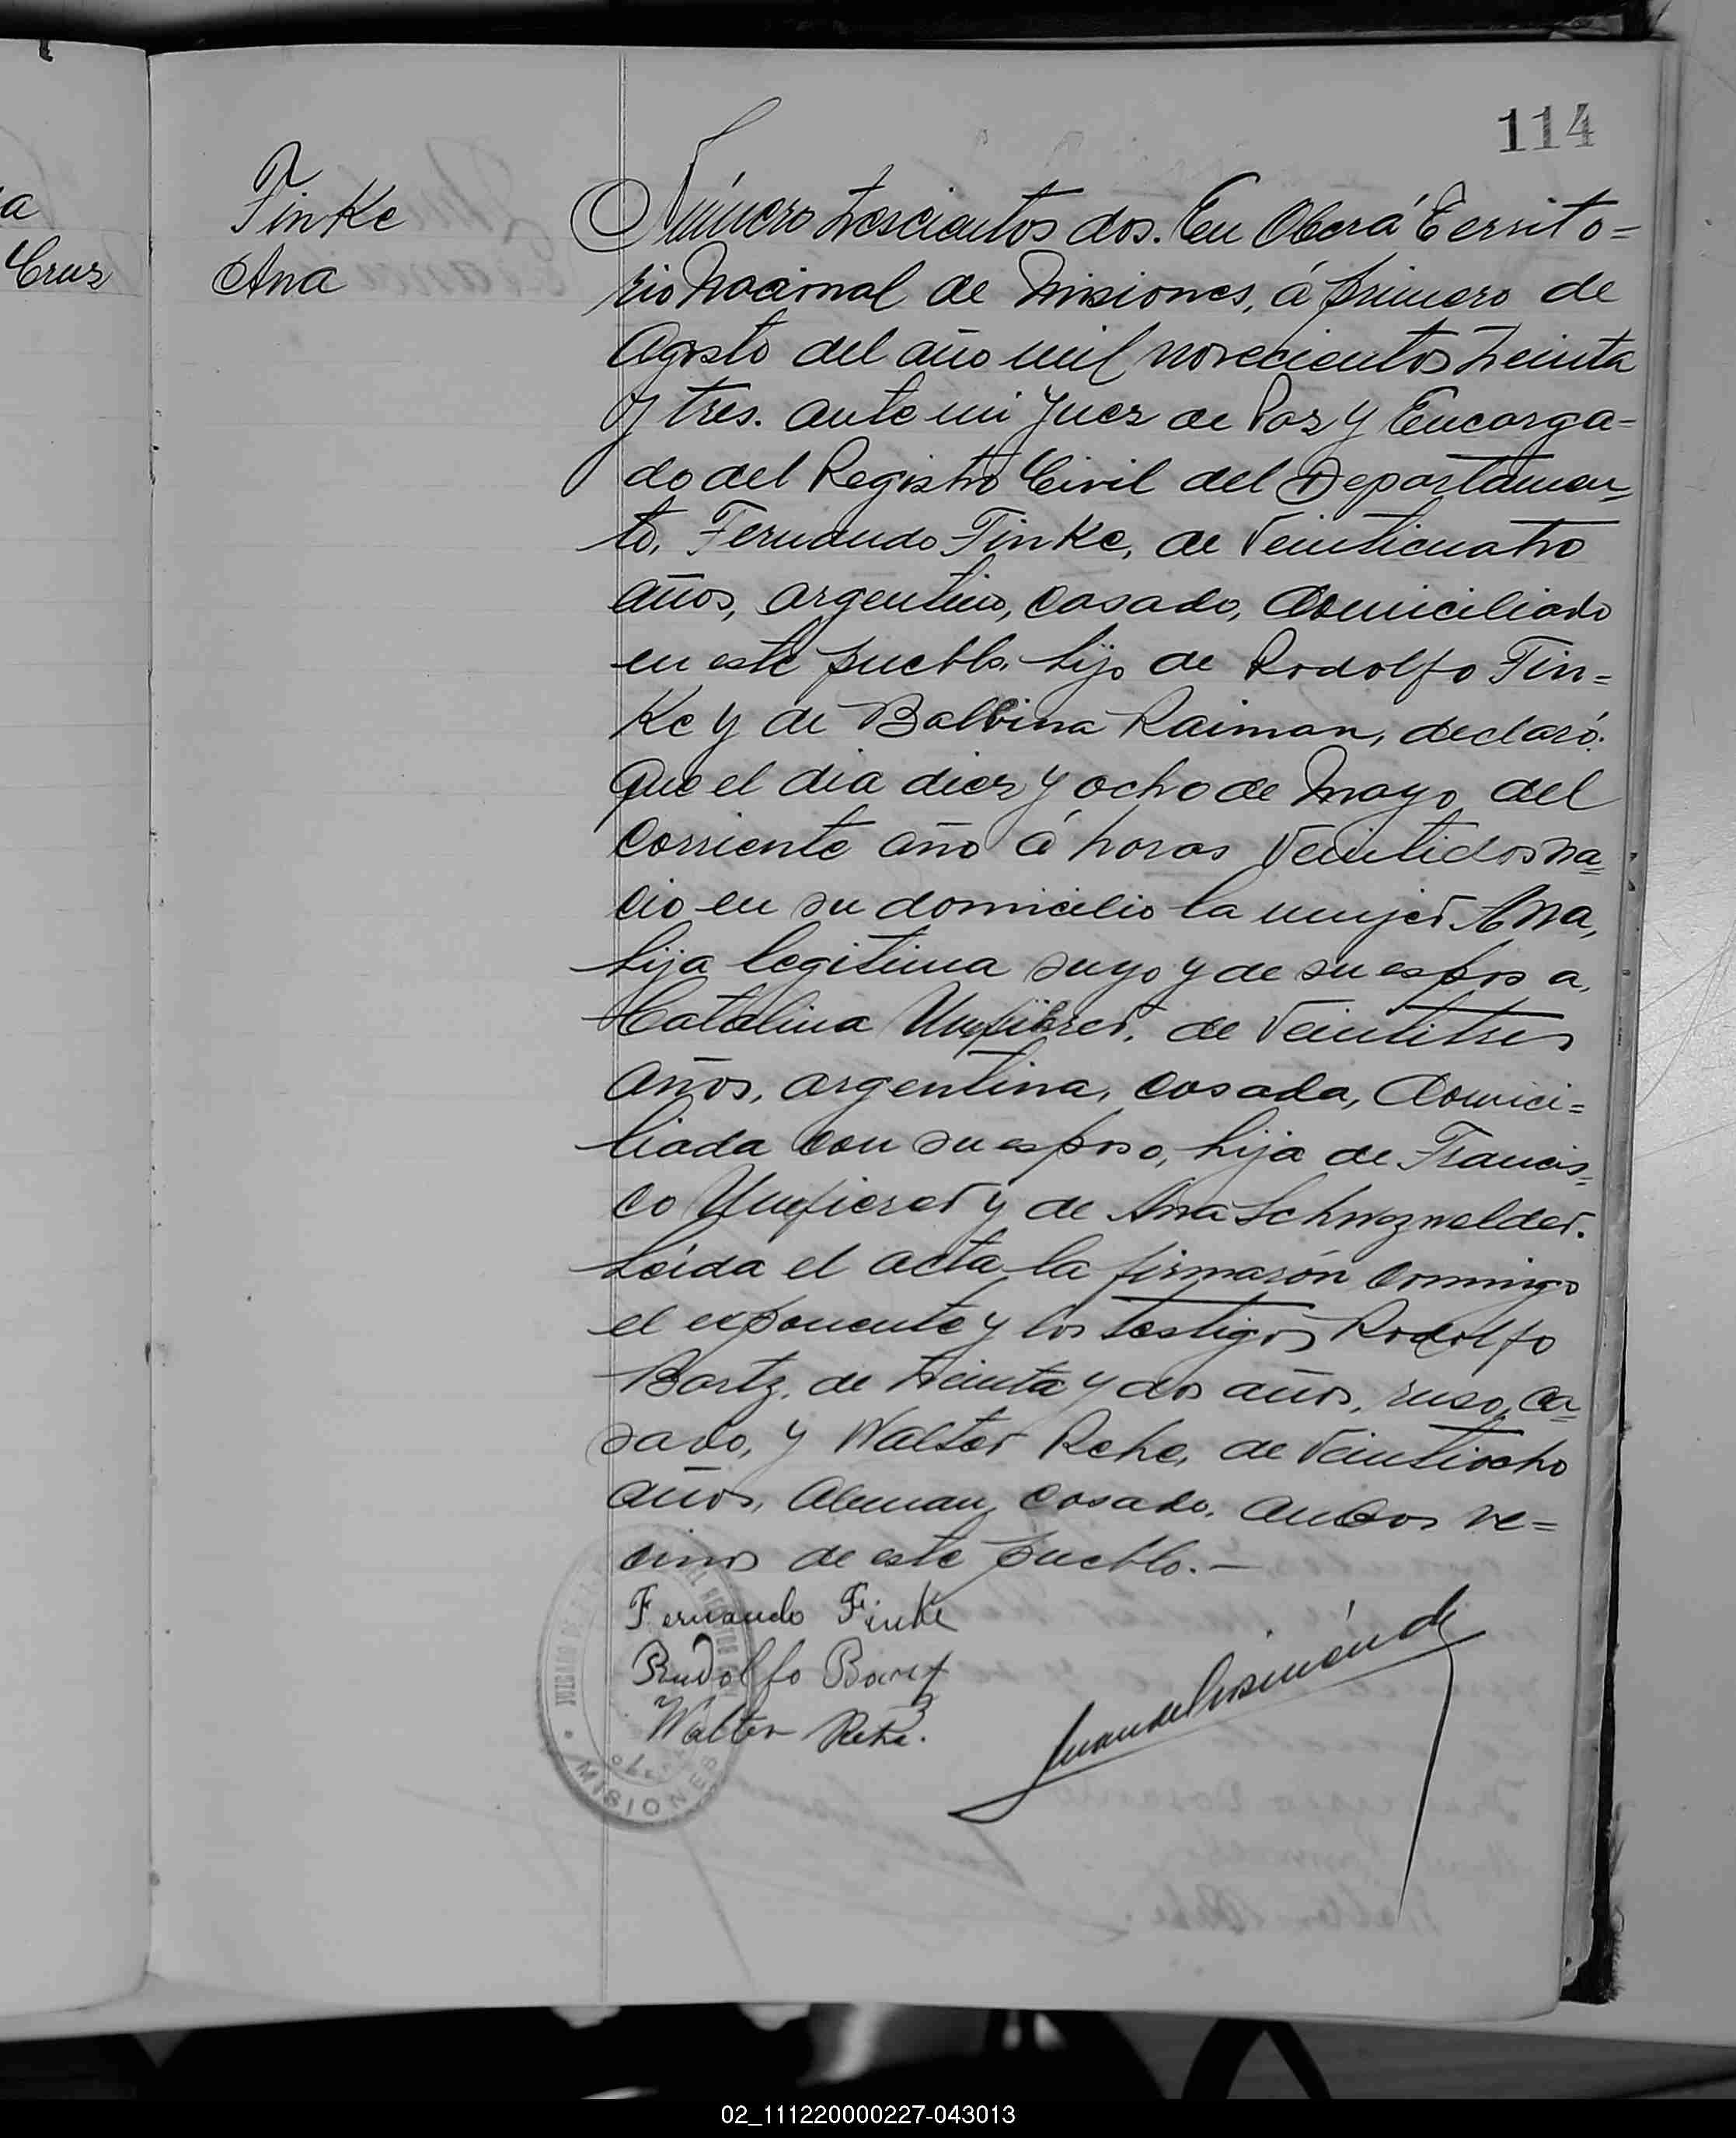 a
Cruz
114
Finke
Ana
Número trescientos dos. En Oberá Territo=
rio Nacional de Misiones, á primero de
Agosto del año mil novecientos treinta
y tres. ante mi Juez de Paz y Encarga=
do del Registro Civil del Departamen=
to, Fernando Finke, de veinticuatro
años, argentino, casado, domiciliado
en este pueblo, hijo de Rodolfo Fin=
ke y de Balbina Raiman, declaró:
Que el dia diez y ocho de Mayo del
corriente año á horas veintidos na=
cio en su domicilio la mujer Ana,
hija legitima suyo y de su esposa,
Catalina de veintitres
años, argentina, casada, domici=
liada con su esposo, hija de Francis=
co y de Ana
Leida el acta la firmarón conmigo
el exponente y los testigos Rodolfo
Bartz, de treinta y dos años, ruso, ca=
sado, y Walter Rehe, de veintiocho
años, Aleman, casado, ambos ve=
cinos de este pueblo.—
Fernando Finke
Rudolfo Bartz
Walter Rehe.
JUZGADO DE
MISIONES
02_111220000227-043013